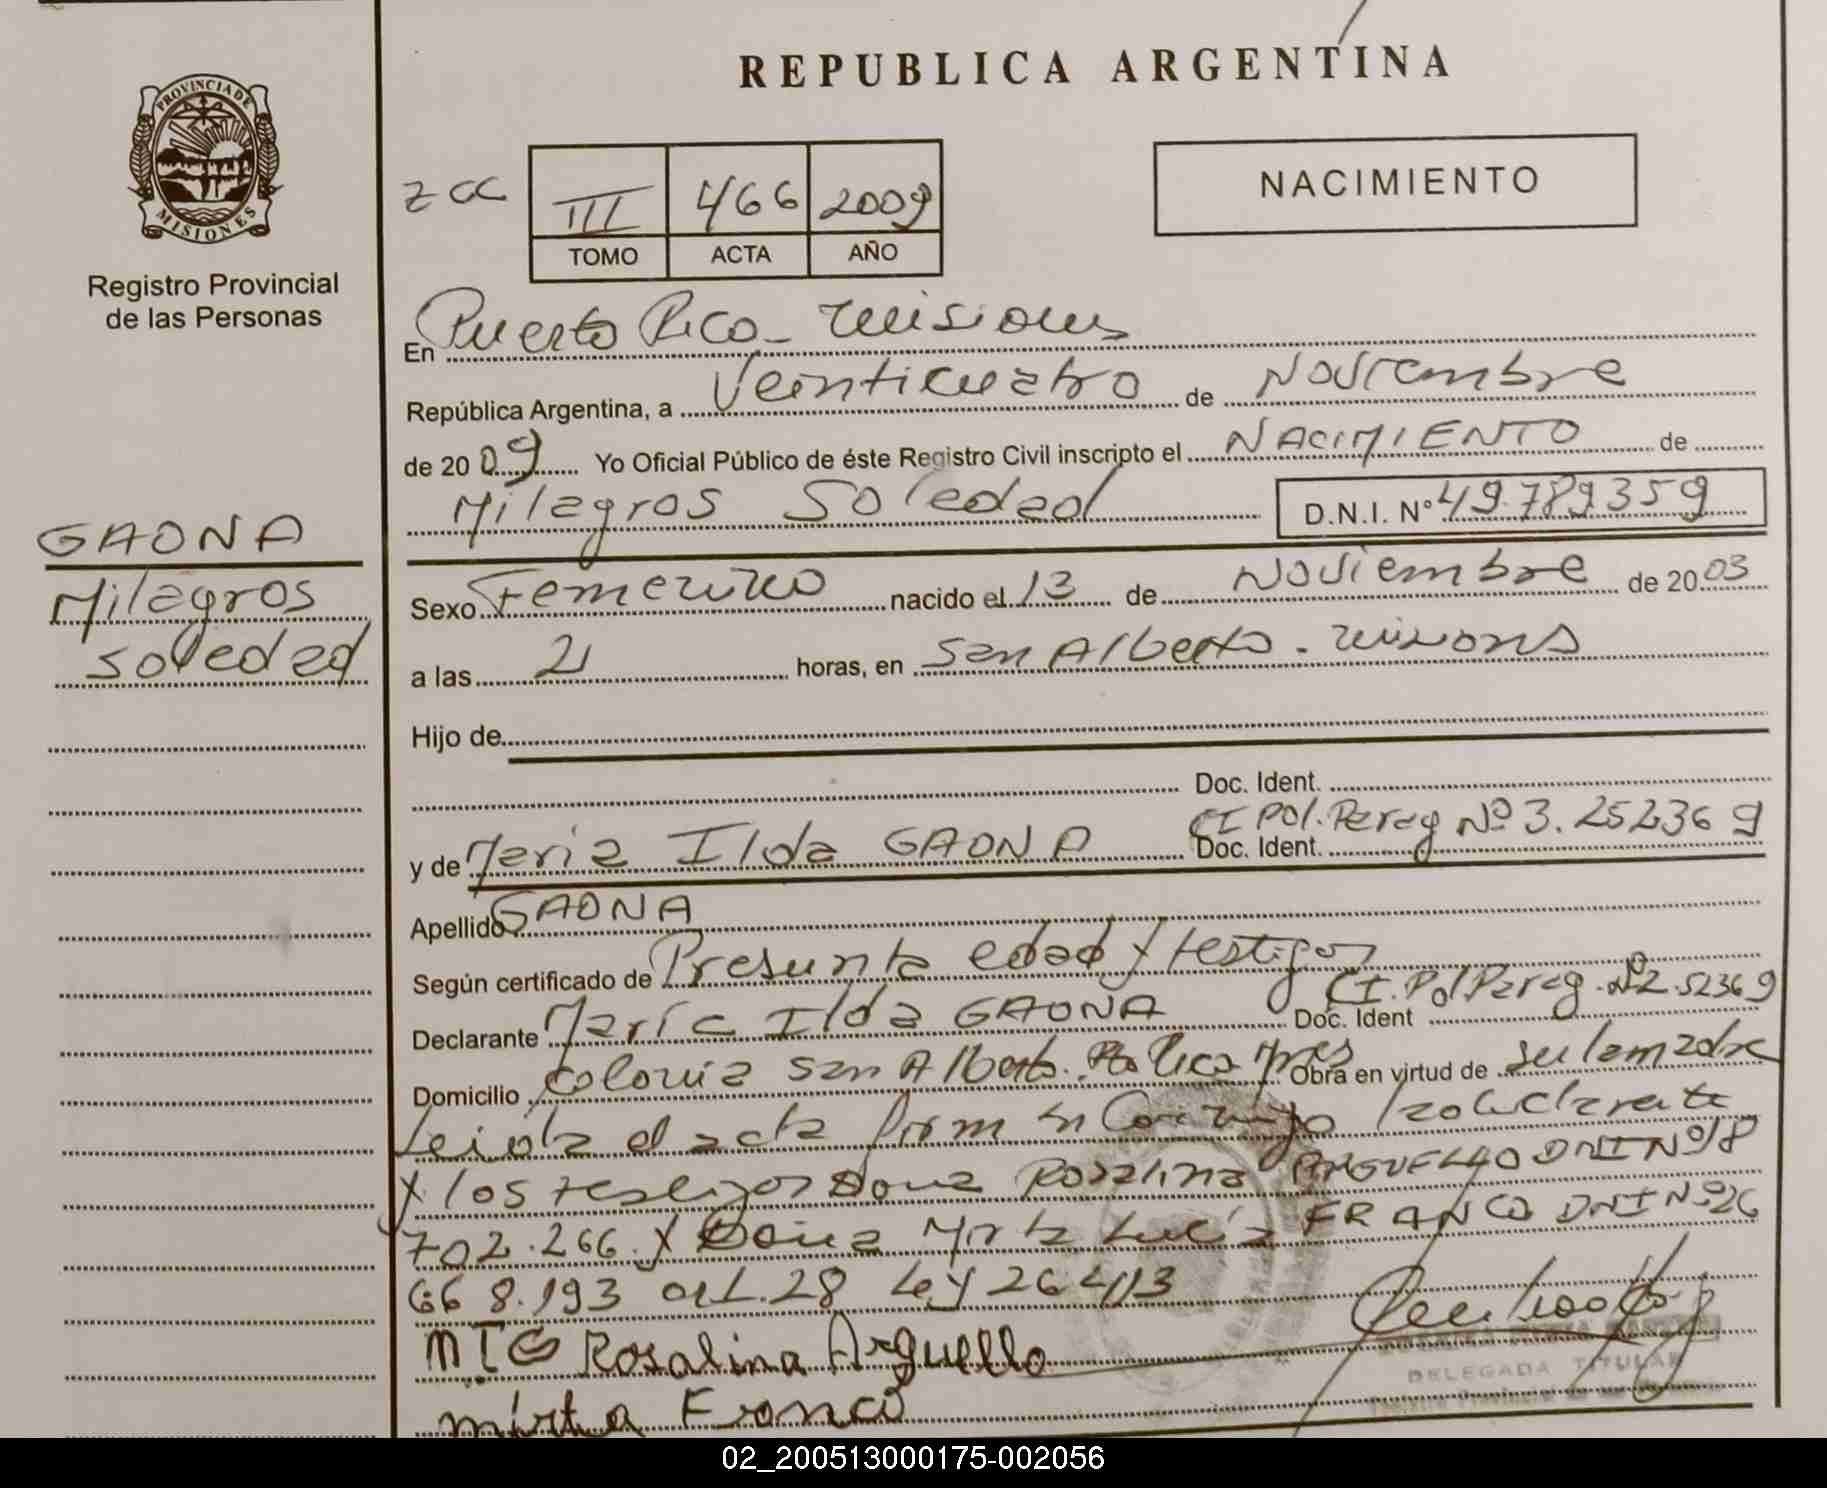 REPUBLICA ARGENTINA
PROVINCIA DE
MISIONES
Registro Provincial
de las Personas
III 466 2009
TOMO ACTA AÑO
NACIMIENTO
En Puerto Rico - Misiones
República Argentina, a Veinticuatro de Noviembre
de 20 09 Yo Oficial Público de éste Registro Civil inscripto el NACIMIENTO de
Milagros Soledad D.N.I. Nº 49.789359
GAONA
Milagros
Soledad
Sexo Femenino nacido el 13 de Noviembre de 20 03
a las 21 horas, en San Alberto - Misiones
Hijo de
Doc. Ident.
y de Maria Ilda GAONA Doc. Ident. CI Pol. Parag Nº 3.252369
Apellido GAONA
Según certificado de Presunta edad y testigos
Declarante Maria Ilda GAONA Doc. Ident CI. Pol Parag. Nº 2.52369
Domicilio Colonia San Alberto. Mnes Obra en virtud de
Leida el acta firman Conmigo la declarante
y los testigos Doña Rosalina ARGUELLO DNI Nº 18
702.266. y Doña Mirta Lucia FRANCO DNI Nº 26
668.193 art. 28 Ley 26413
MIG Rosalina Arguello
DELEGADA TITULAR
mirta Franco
02_200513000175-002056